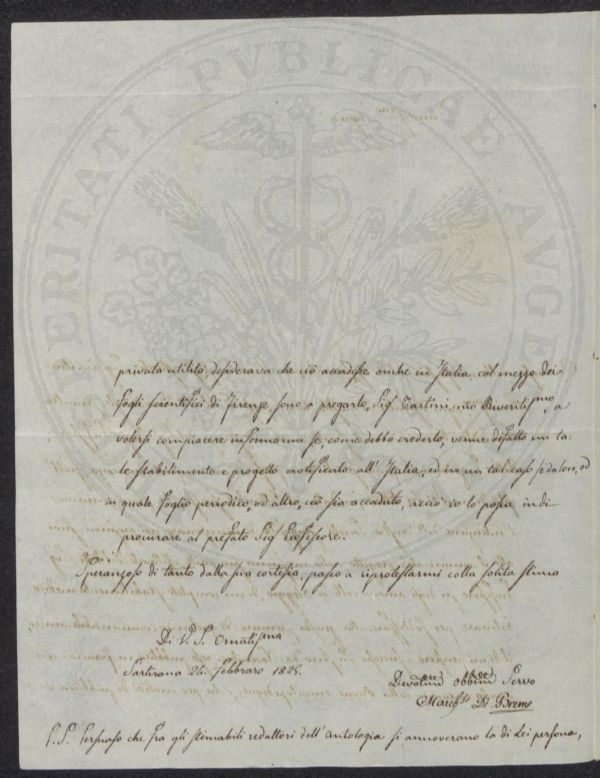 VERITATI PVBLICAE AVGE
privata utilità, desiderava che ciò accadesse anche in Italia col mezzo dei
fogli scientifici di Firenze, sono a pregarla, Sig. Tartini, mio Riveritissmo, a
volersi compiacere informarmi se, come debbo crederlo, venne difatto un ta-
le stabilimento e progetto notificato all' Italia, ed in un tal caso se da loro, od
in quale foglio periodico, od altro, ciò sia accaduto, acciò io lo possa indi
procurare al prefato Sig. Professore.
Speranzoso di tanto dalla sua cortesia, passo a riprotestarmi colla solita stima
Di V. S. Ornatissma
Sartirana 24. Febbraro 1825.
Devotmo Obbmo Servo
Marchse Di Breme
P. S. Persuaso che fra gli stimabili redattori dell' Antologia si annoverano la di Lei persona,